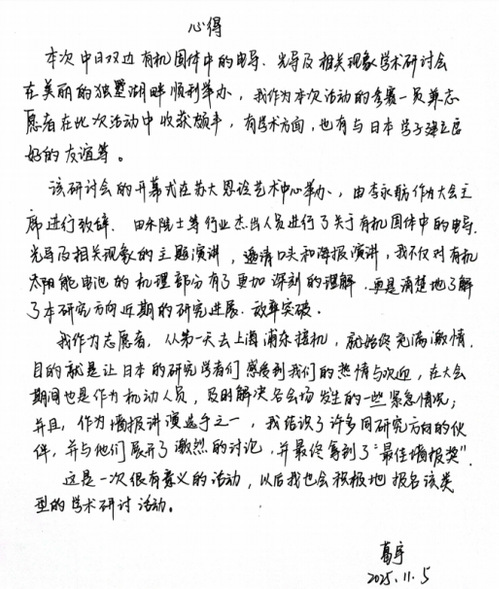 心得
本次中日双边有机固体中的电导、光导及相关现象学术研讨会
在美丽的独墅湖畔顺利举办，我作为本次活动的参赛一员兼志
愿者在此次活动中收获颇丰，有学术方面，也有与日本学子建立良
好的友谊等。
该研讨会的开幕式在苏大恩玲艺术中心举办，由李永舫作为大会主
席进行致辞．由永院士等行业杰出人员进行了关于有机固体中的电导．
光导及相关现象的主题演讲，邀请口头和海报演讲，我不仅对有机
太阳能电池的机理部分有了更加深刻的理解．更是清楚地了解
了本研究方向近期的研究进展、效率突破．
我作为志愿者，从第一天去上海浦东接机，就始终充满激情．
目的就是让日本的研究学者们感受到我们的热情与欢迎，在大会
期间也是作为机动人员，及时解决各会场发生的一些紧急情况；
并且，作为墙报讲演选手之一，我结识了许多同研究方向的伙
伴，并与他们展开了激烈的讨论，并最终拿到了“最佳墙报奖”．
这是一次很有意义的活动，以后我也会积极地报名该类
型的学术研讨活动。
葛宇
2025.11.5